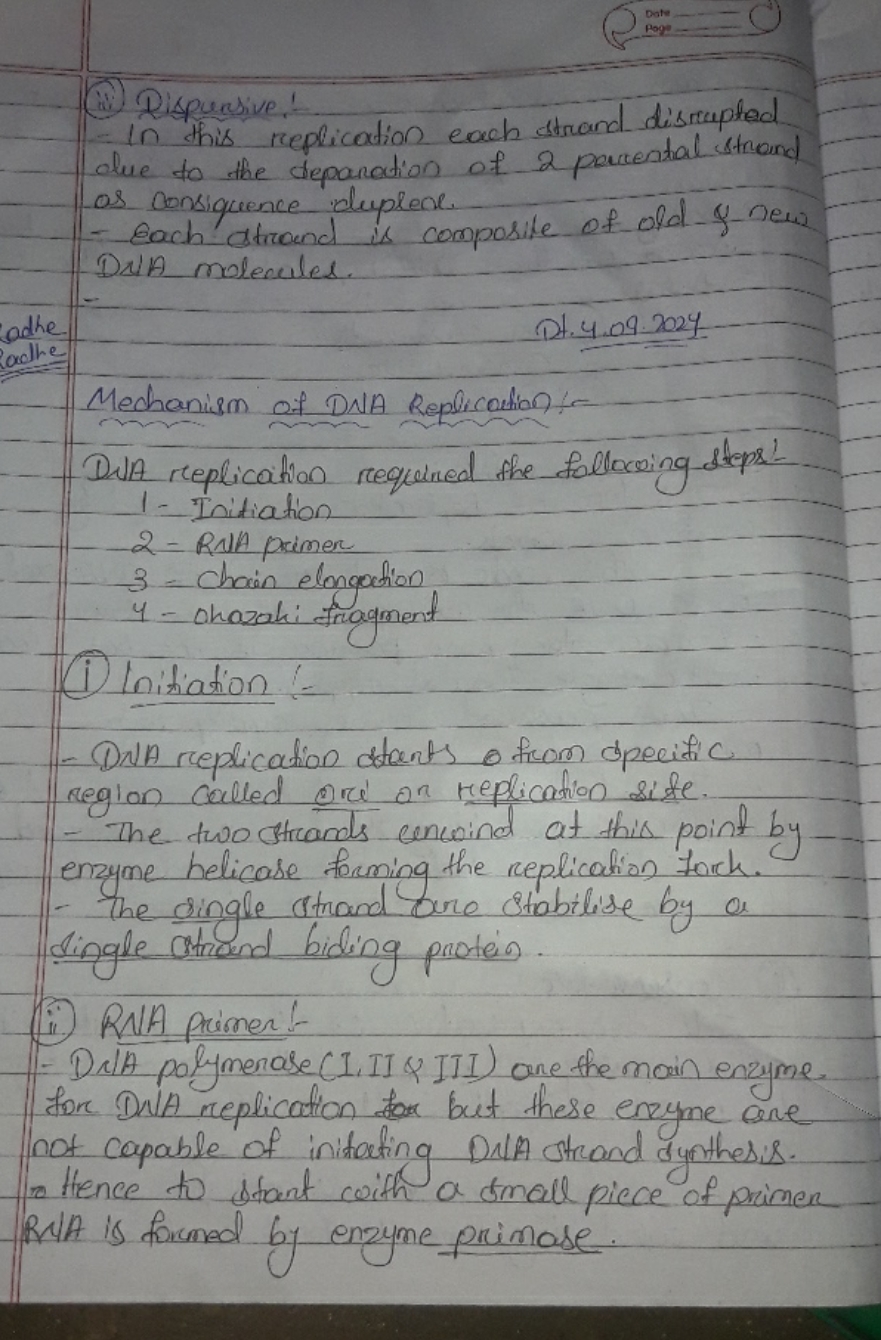 Date
Page
(iii) Dispursive :-
- In this replication each strand disrupted
due to the separation of 2 parental strand
as consiquence duplex.
- Each strand is composite of old & new
DNA molecules.
-
Radhe
Radhe
Dt. 4.09.2024
Mechanism of DNA Replication :-
DNA replication required the following steps :-
1 - Initiation
2 - RNA primer
3 - Chain elongation
4 - Okazaki fragment
(i) Initiation :-
- DNA replication starts from specific
region called ori or replication site.
- The two strands unwind at this point by
enzyme helicase forming the replication fork.
- The single strand are stabilise by a
single strand biding protein.
(ii) RNA primer :-
- DNA polymerase (I, II & III) are the main enzyme
for DNA replication but these enzyme are
not capable of initating DNA strand synthesis.
- Hence to start with a small piece of primer
RNA is formed by enzyme primase.